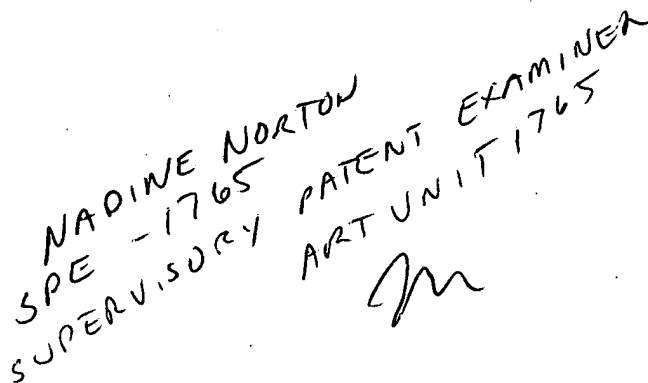 NADINE NORTON
SPE - 1765
SUPERVISORY PATENT EXAMINER
ART UNIT 1765